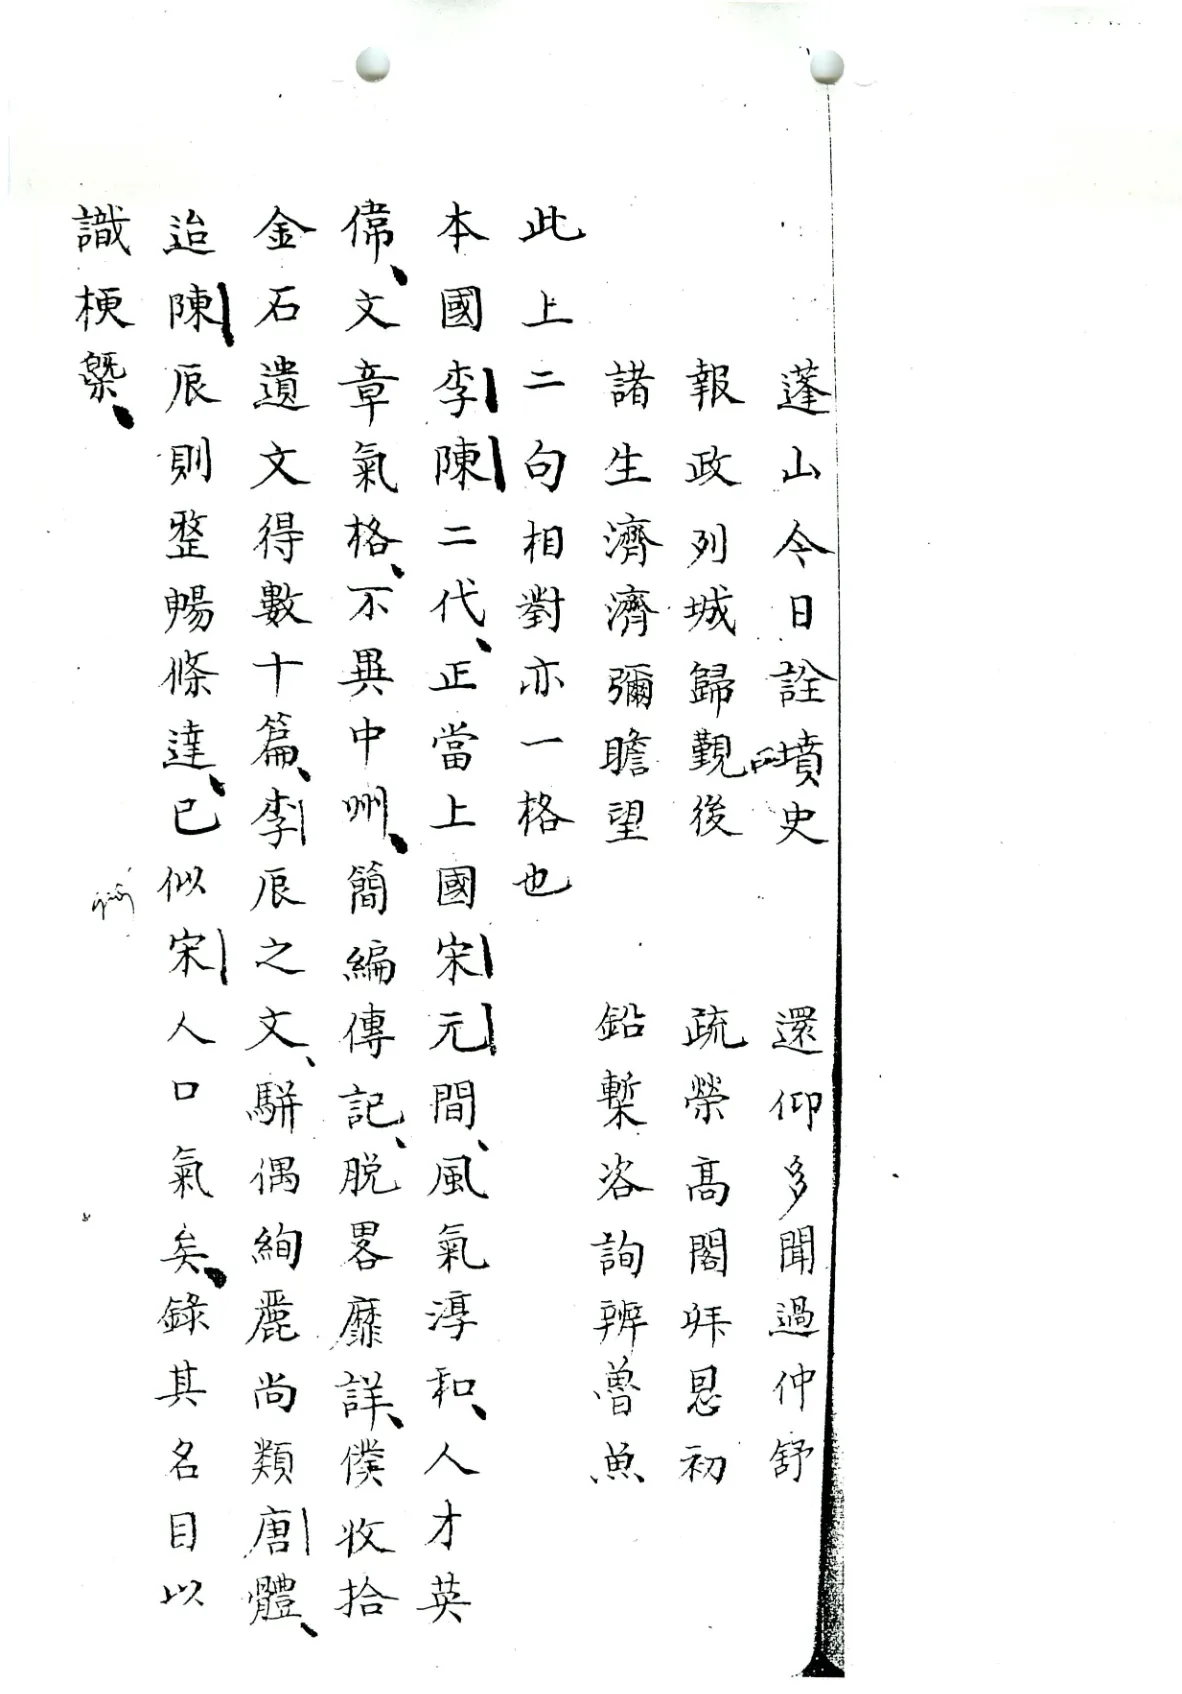 蓬山今日詮墳史 還仰多聞過仲舒
報政列城歸覲後 疏榮高閣拜恩初
諸生濟濟彌瞻望 鉛槧咨詢辨魯魚
此上二句相對亦一格也
本國李陳二代正當上國宋元間風氣淳和人才英
偉文章氣格不異中州簡編傳記脱畧靡詳僕收拾
金石遺文得數十篇李辰之文駢偶絢麗尚類唐體
迨陳辰則整暢條達已似宋人口氣矣錄其名目以
識梗槩